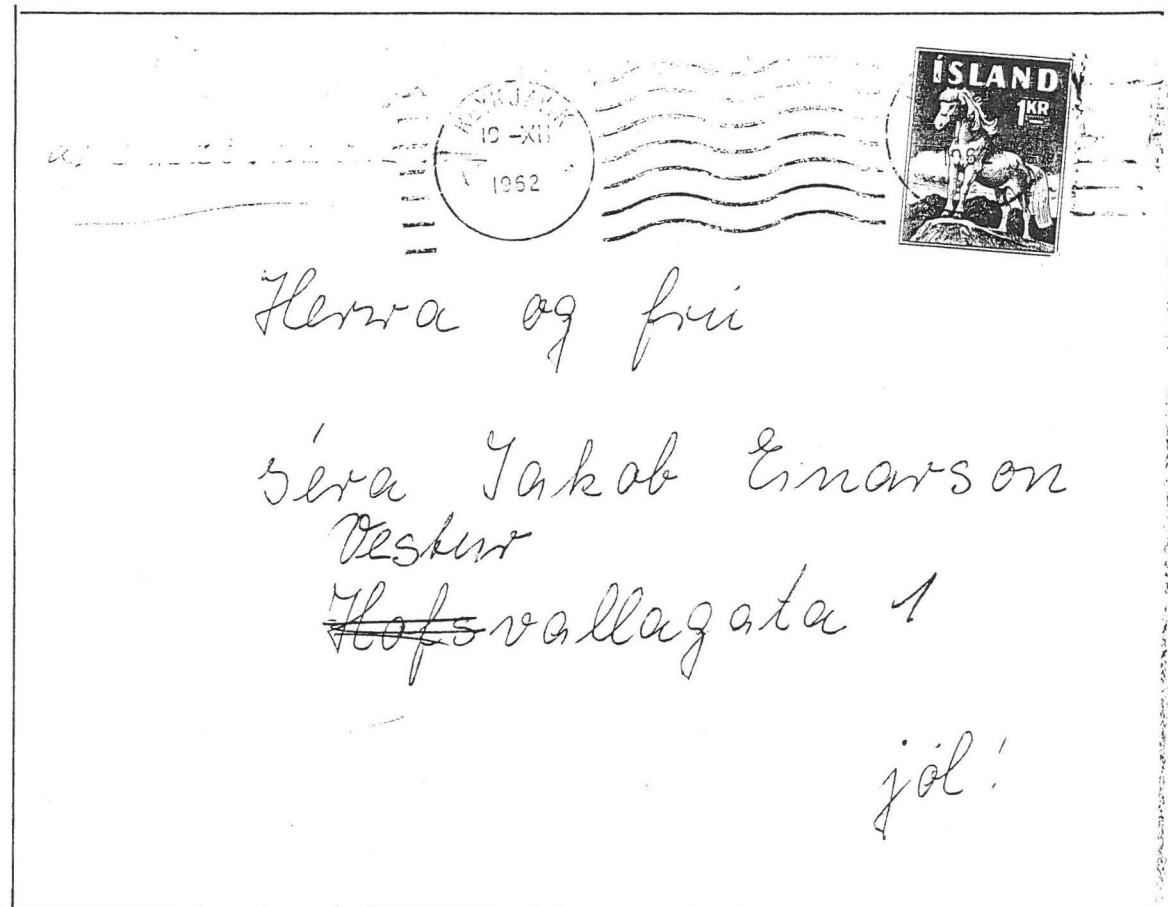 REYKJAVÍK
19 -XII
1962
ÍSLAND
1 KR
Herra og frú
séra Jakob Einarson
Vestur
Hofsvallagata 1
jól!